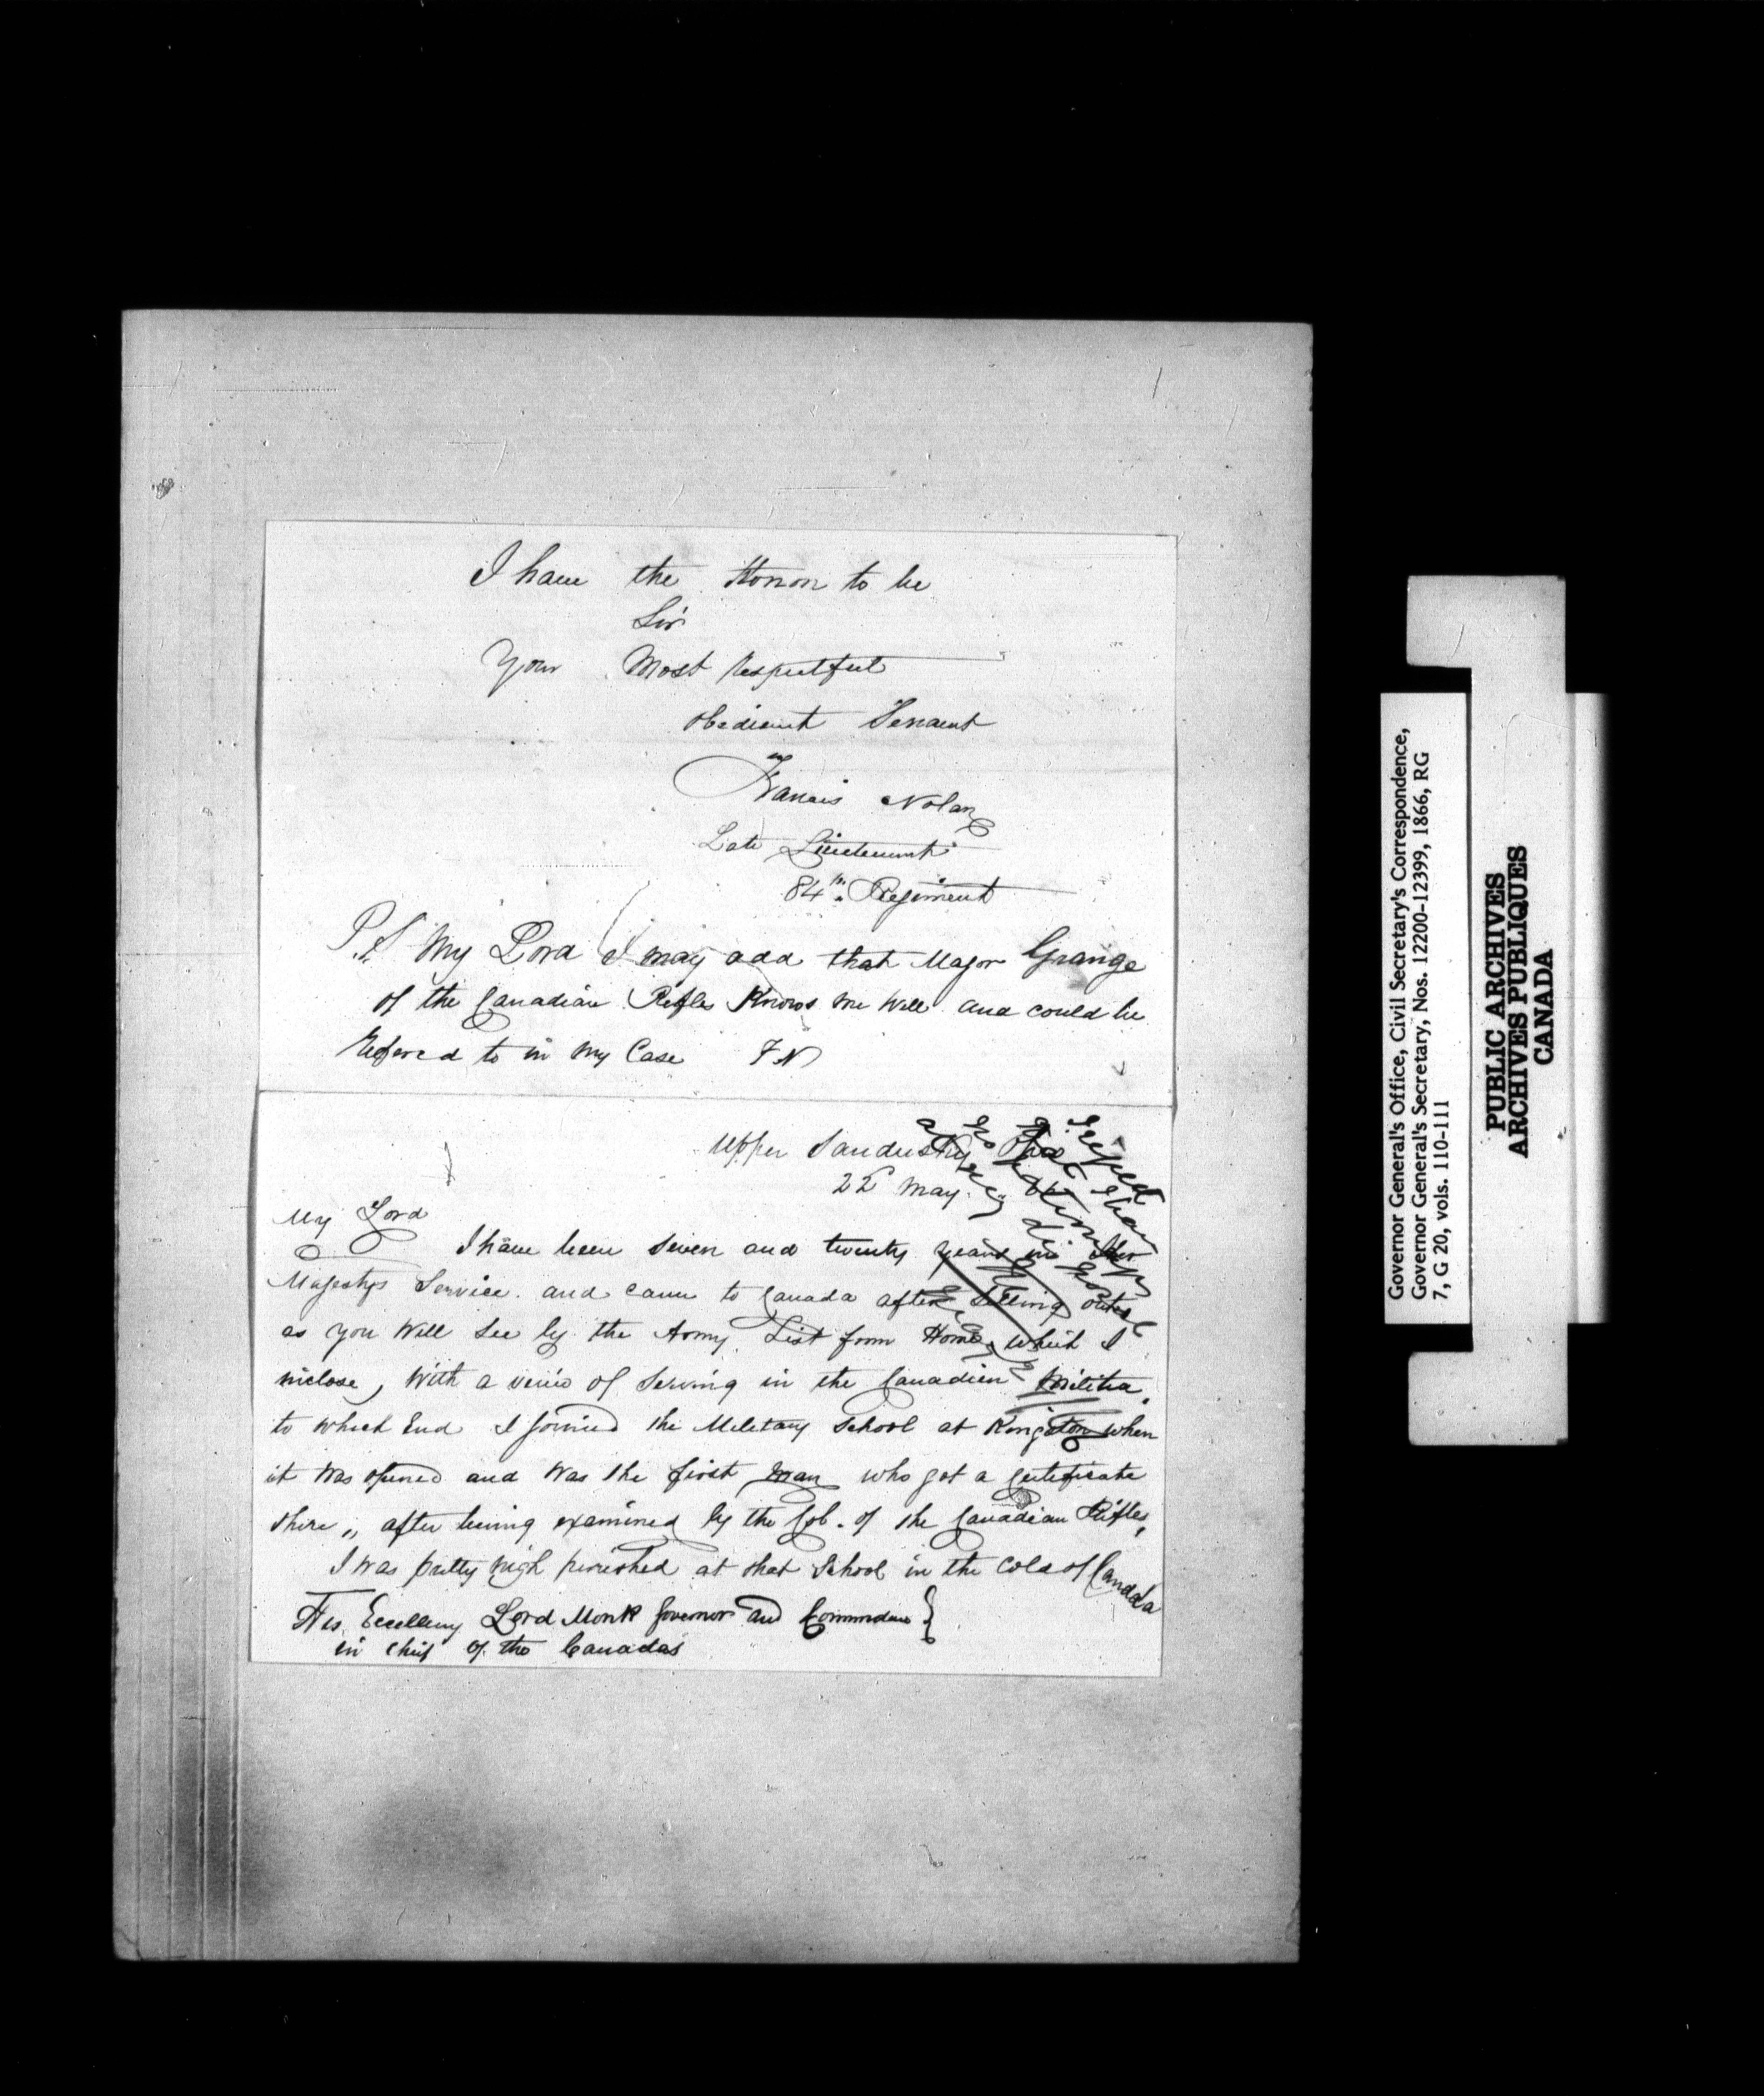 I have the Honor to be
Sir
Your Most respectful
obedient Servant
Francis Nolan
Late Lieutenant
84th Regiment
P.S. My Lord I may add that Major Grange
of the Canadian Rifles Knows me well and could be
refered to in my Case F N
Upper Sandusky Ohio
22d May.
My Lord
I have been seven and twenty years in Her
Majestys Service. and came to Canada after Selling out
as you Will See by the Army List from Home, which I
inclose, with a veiw of Serving in the Canadian Militia,
to which End I joined the Military School at Kingston when
it was opened and was the first man who got a certificate
there,, after being examined by the Col. of the Canadian Rifles,
I was pretty nigh perished at that School in the cold of Canada
His Excellency Lord Monk Governor and Commdeur
in Chief of the Canadas
Governor General's Office, Civil Secretary's Correspondence,
Governor General's Secretary, Nos. 12200-12399, 1866, RG
7, G 20, vols. 110-111
PUBLIC ARCHIVES
ARCHIVES PUBLIQUES
CANADA